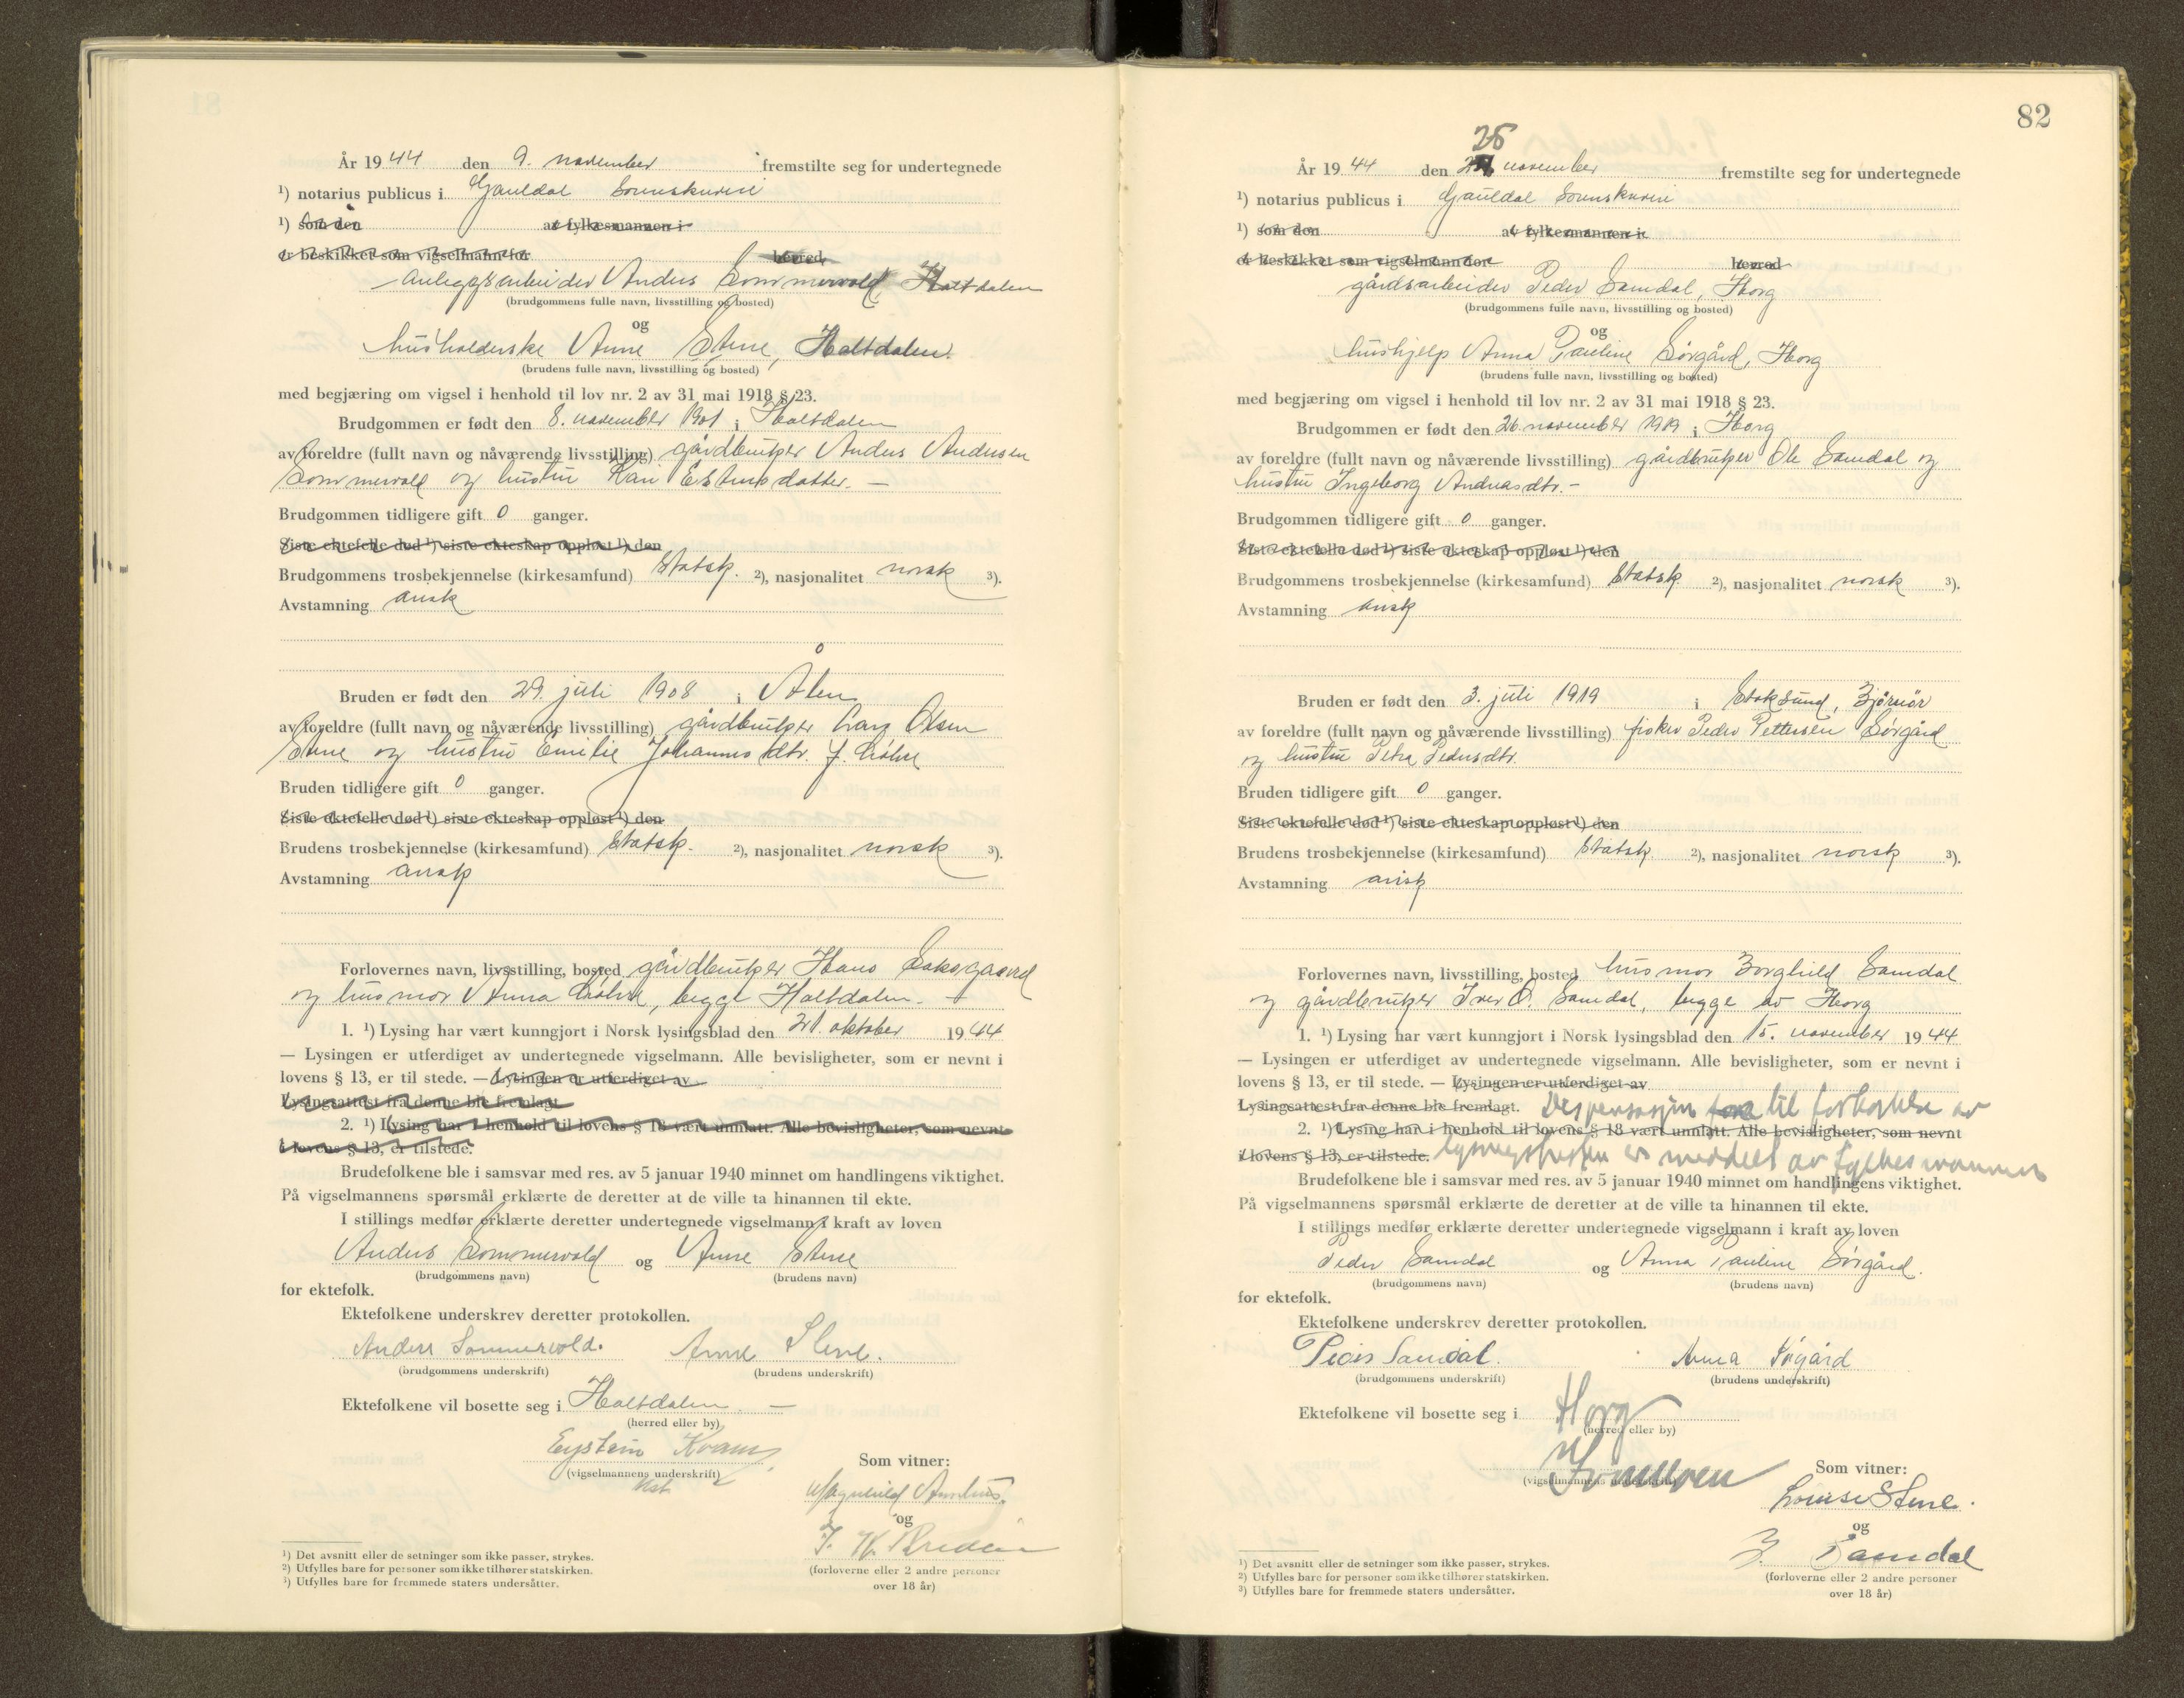 År 1944 den 9. november fremstilte seg for undertegnede
¹) notarius publicus i Gauldal Sorenskriveri
¹) som den av fylkesmannen i
er beskikket som vigselmann for herred
anleggsarbeider Anders Sommervold, Haltdalen
(brudgommens fulle navn, livsstilling og bosted)
og
husholderske Anne Stene, Haltdalen.
(brudens fulle navn, livsstilling og bosted)
med begjæring om vigsel i henhold til lov nr. 2 av 31 mai 1918 § 23.
Brudgommen er født den 8. november 1901 i Haltdalen
av foreldre (fullt navn og nåværende livsstilling) gårdbruker Anders Andersen
Sommervold og hustru Kari Estensdatter. —
Brudgommen tidligere gift 0 ganger.
Siste ektefelle død ¹) siste ekteskap oppløst ¹) den
Brudgommens trosbekjennelse (kirkesamfund) Statsk. ²), nasjonalitet norsk ³).
Avstamning arisk
Bruden er født den 29. juli 1908 i Ålen
av foreldre (fullt navn og nåværende livsstilling) gårdbruker Lars Olsen
Stene og hustru Emilie Johannesdtr. f.
Bruden tidligere gift 0 ganger.
Siste ektefelle død ¹) siste ekteskap oppløst ¹) den
Brudens trosbekjennelse (kirkesamfund) Statsk. ²), nasjonalitet norsk ³).
Avstamning arisk
Forlovernes navn, livsstilling, bosted gårdbruker Hans
og husmor Anna begge Haltdalen. —
1. ¹) Lysing har vært kunngjort i Norsk lysingsblad den 21. oktober 1944
— Lysingen er utferdiget av undertegnede vigselmann. Alle bevisligheter, som er nevnt i
lovens § 13, er til stede. — Lysingen er utferdiget av
Lysingsattest fra denne ble fremlagt.
2. ¹) Lysing har i henhold til lovens § 18 vært unnlatt. Alle bevisligheter, som nevnt
i lovens § 13, er tilstede.
Brudefolkene ble i samsvar med res. av 5 januar 1940 minnet om handlingens viktighet.
På vigselmannens spørsmål erklærte de deretter at de ville ta hinannen til ekte.
I stillings medfør erklærte deretter undertegnede vigselmann i kraft av loven
Anders Sommervold og Anne Stene
(brudgommens navn) (brudens navn)
for ektefolk.
Ektefolkene underskrev deretter protokollen.
Anders Sommervold. Anne Stene.
(brudgommens underskrift) (brudens underskrift)
Ektefolkene vil bosette seg i Haltdalen. —
(herred eller by)
Eystein Kvam
(vigselmannens underskrift) Som vitner:
Magnhild
og
(forloverne eller 2 andre personer
over 18 år)
¹) Det avsnitt eller de setninger som ikke passer, strykes.
²) Utfylles bare for personer som ikke tilhører statskirken.
³) Utfylles bare for fremmede staters undersåtter.
82
25
År 1944 den november fremstilte seg for undertegnede
¹) notarius publicus i Gauldal Sorenskriveri
¹) som den av fylkesmannen i
er beskikket som vigselmann for herred
gårdsarbeider Peder Samdal, Horg
(brudgommens fulle navn, livsstilling og bosted)
og
hushjelp Anna Pauline Sørgård, Horg
(brudens fulle navn, livsstilling og bosted)
med begjæring om vigsel i henhold til lov nr. 2 av 31 mai 1918 § 23.
Brudgommen er født den 26. november 1919 i Horg
av foreldre (fullt navn og nåværende livsstilling) gårdbruker Ole Samdal og
hustru Ingeborg Andreasdtr. —
Brudgommen tidligere gift 0 ganger.
Siste ektefelle død ¹) siste ekteskap oppløst ¹) den
Brudgommens trosbekjennelse (kirkesamfund) Statsk. ²), nasjonalitet norsk ³).
Avstamning arisk
Bruden er født den 3. juli 1919 i Stoksund, Bjørnør
av foreldre (fullt navn og nåværende livsstilling) fisker Peder Pettersen Sørgård
og hustru Petra Pedersdtr.
Bruden tidligere gift 0 ganger.
Siste ektefelle død ¹) siste ekteskap oppløst ¹) den
Brudens trosbekjennelse (kirkesamfund) Statsk. ²), nasjonalitet norsk ³).
Avstamning arisk
Forlovernes navn, livsstilling, bosted husmor Borghild Samdal
og gårdbruker Iver O. Samdal, begge av Horg
1. ¹) Lysing har vært kunngjort i Norsk lysingsblad den 15. november 1944
— Lysingen er utferdiget av undertegnede vigselmann. Alle bevisligheter, som er nevnt i
lovens § 13, er til stede. — Lysingen er utferdiget av
Lysingsattest fra denne ble fremlagt. Dispensasjon til forkortelse av
2. ¹) Lysing har i henhold til lovens § 18 vært unnlatt. Alle bevisligheter, som nevnt
i lovens § 13, er tilstede. lysningsfristen er meddelt av fylkesmannen
Brudefolkene ble i samsvar med res. av 5 januar 1940 minnet om handlingens viktighet.
På vigselmannens spørsmål erklærte de deretter at de ville ta hinannen til ekte.
I stillings medfør erklærte deretter undertegnede vigselmann i kraft av loven
Peder Samdal og Anna Pauline Sørgård.
(brudgommens navn) (brudens navn)
for ektefolk.
Ektefolkene underskrev deretter protokollen.
Peder Samdal. Anna Sørgård
(brudgommens underskrift) (brudens underskrift)
Ektefolkene vil bosette seg i Horg
(herred eller by)
(vigselmannens underskrift) Som vitner:
Louise Stene.
og
Samdal
(forloverne eller 2 andre personer
over 18 år)
¹) Det avsnitt eller de setninger som ikke passer, strykes.
²) Utfylles bare for personer som ikke tilhører statskirken.
³) Utfylles bare for fremmede staters undersåtter.